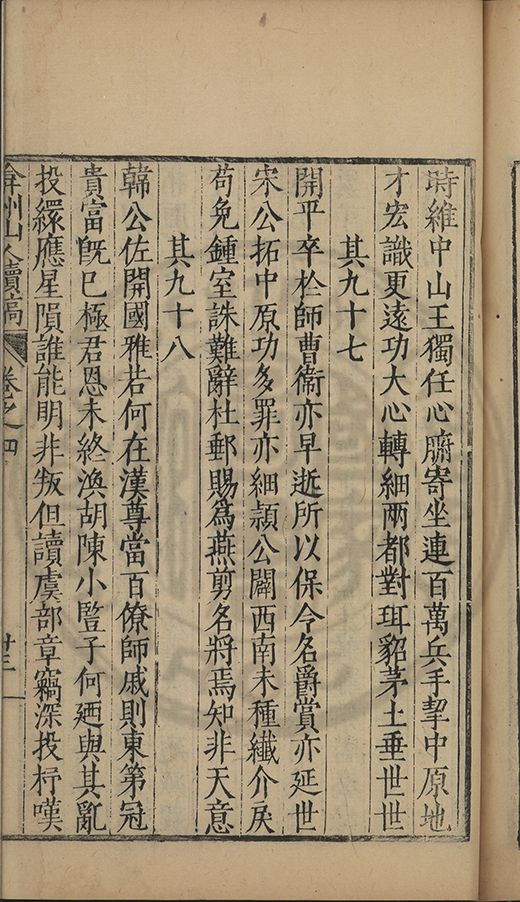 時維中山王獨任心膂寄坐連百萬兵手挈中原地
才宏識更遠功大心轉細兩都對珥貂茅土垂世世
其九十七
開平卒於師曹衞亦早逝所以保令名爵賞亦延世
宋公拓中原功多罪亦細頴公闢西南未種纎介戾
苟免鍾室誅難辭杜郵賜爲燕剪名將焉知非天意
其九十八
韓公佐開國雅若何在漢尊當百僚師戚則東第冠
貴富旣已極君恩未終渙胡陳小豎子何廼與其亂
投繯應星隕誰能明非叛但讀虞部章竊深投杼嘆
弇州山人續稿 卷之四 廿三